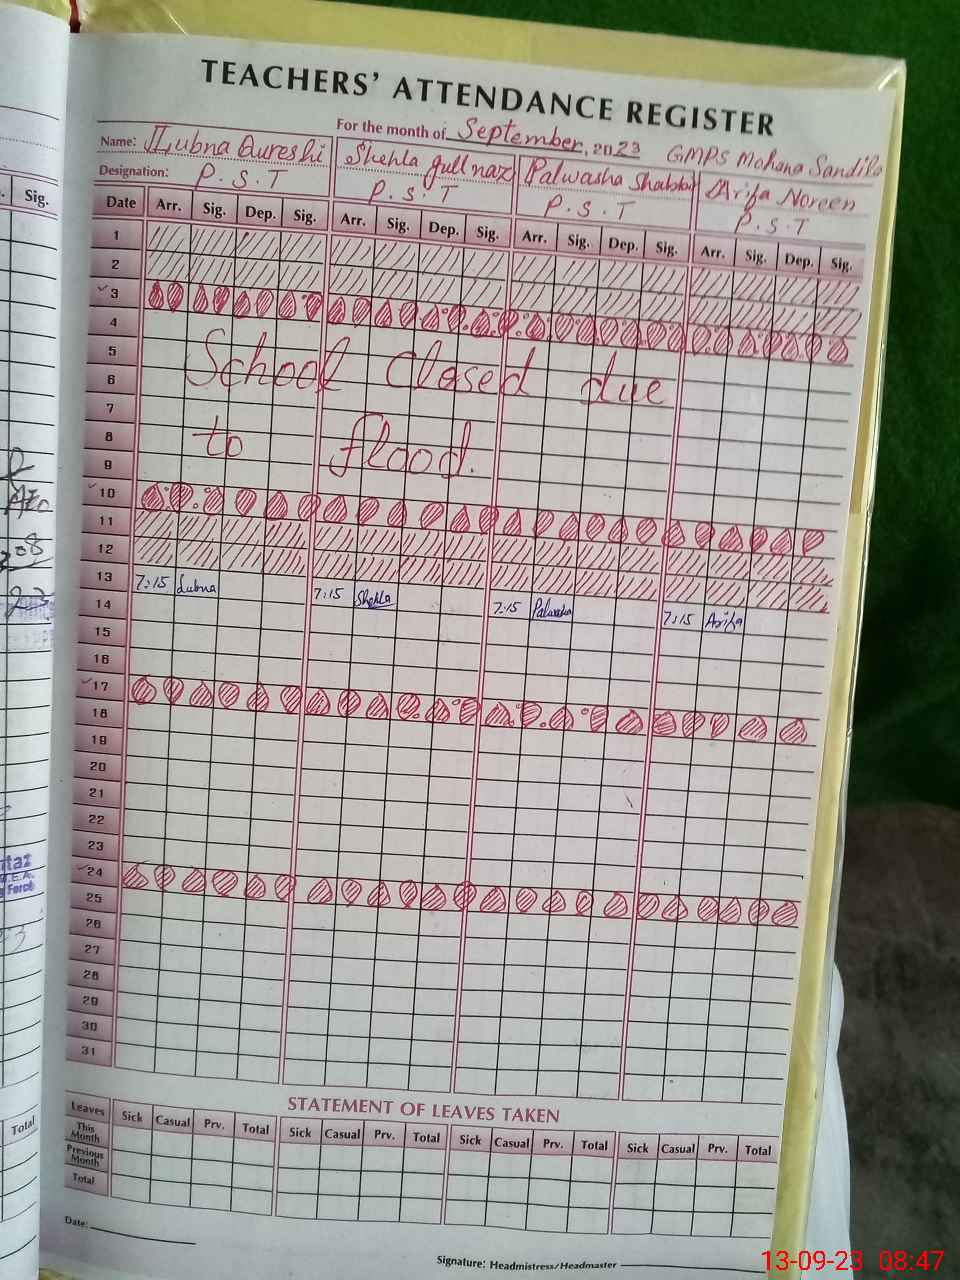 TEACHERS' ATTENDANCE REGISTER
For the month of September, 2023 GMPS Mohana Sandila
Name: Lubna Qureshi Shehla gull naz Palwasha Shabbir Arifa Noreen
Designation: P.S.T P.S.T P.S.T P.S.T
Date Arr. Sig. Dep. Sig. Arr. Sig. Dep. Sig. Arr. Sig. Dep. Sig. Arr. Sig. Dep. Sig.
1
2
3
4
5
School Closed due
6
7
8
to flood.
9
10
11
12
13 7:15 Lubna 7:15 Shehla 7:15 Palwasha 7:15 Arifa
14
15
16
17
18
19
20
21
22
23
24
25
26
27
28
29
30
31
STATEMENT OF LEAVES TAKEN
Leaves Sick Casual Prv. Total Sick Casual Prv. Total Sick Casual Prv. Total Sick Casual Prv. Total
This Month
Previous Month
Total
Date:
Signature: Headmistress/Headmaster
Sig.
208
Total
13-09-23 08:47